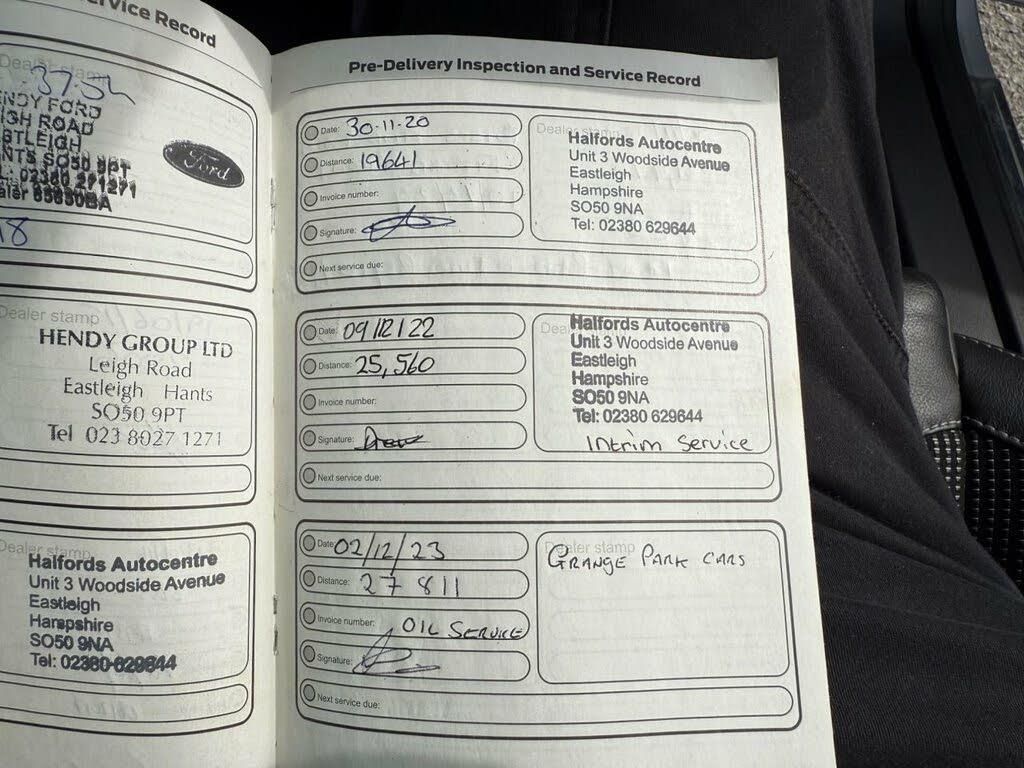 Service Record
Dealer stamp
ENDY FORD
IGH ROAD
STLEIGH
NTS SO50 9PT
L: 02380 271271
aler 85650BA
Ford
18
Dealer stamp
HENDY GROUP LTD
Leigh Road
Eastleigh Hants
SO50 9PT
Tel 023 8027 1271
Dealer stamp
Halfords Autocentre
Unit 3 Woodside Avenue
Eastleigh
Hampshire
SO50 9NA
Tel: 02380 629644
Pre-Delivery Inspection and Service Record
Date: 30-11-20
Distance: 19641
Invoice number:
Signature:
Next service due:
Dealer stamp
Halfords Autocentre
Unit 3 Woodside Avenue
Eastleigh
Hampshire
SO50 9NA
Tel: 02380 629644
Date: 09/12/22
Distance: 25,560
Invoice number:
Signature:
Next service due:
Dea
Halfords Autocentre
Unit 3 Woodside Avenue
Eastleigh
Hampshire
SO50 9NA
Tel: 02380 629644
Intrim Service
Date: 02/12/23
Distance: 27811
Invoice number: OIL SERVICE
Signature:
Next service due:
Dealer stamp
GRANGE PARK CARS